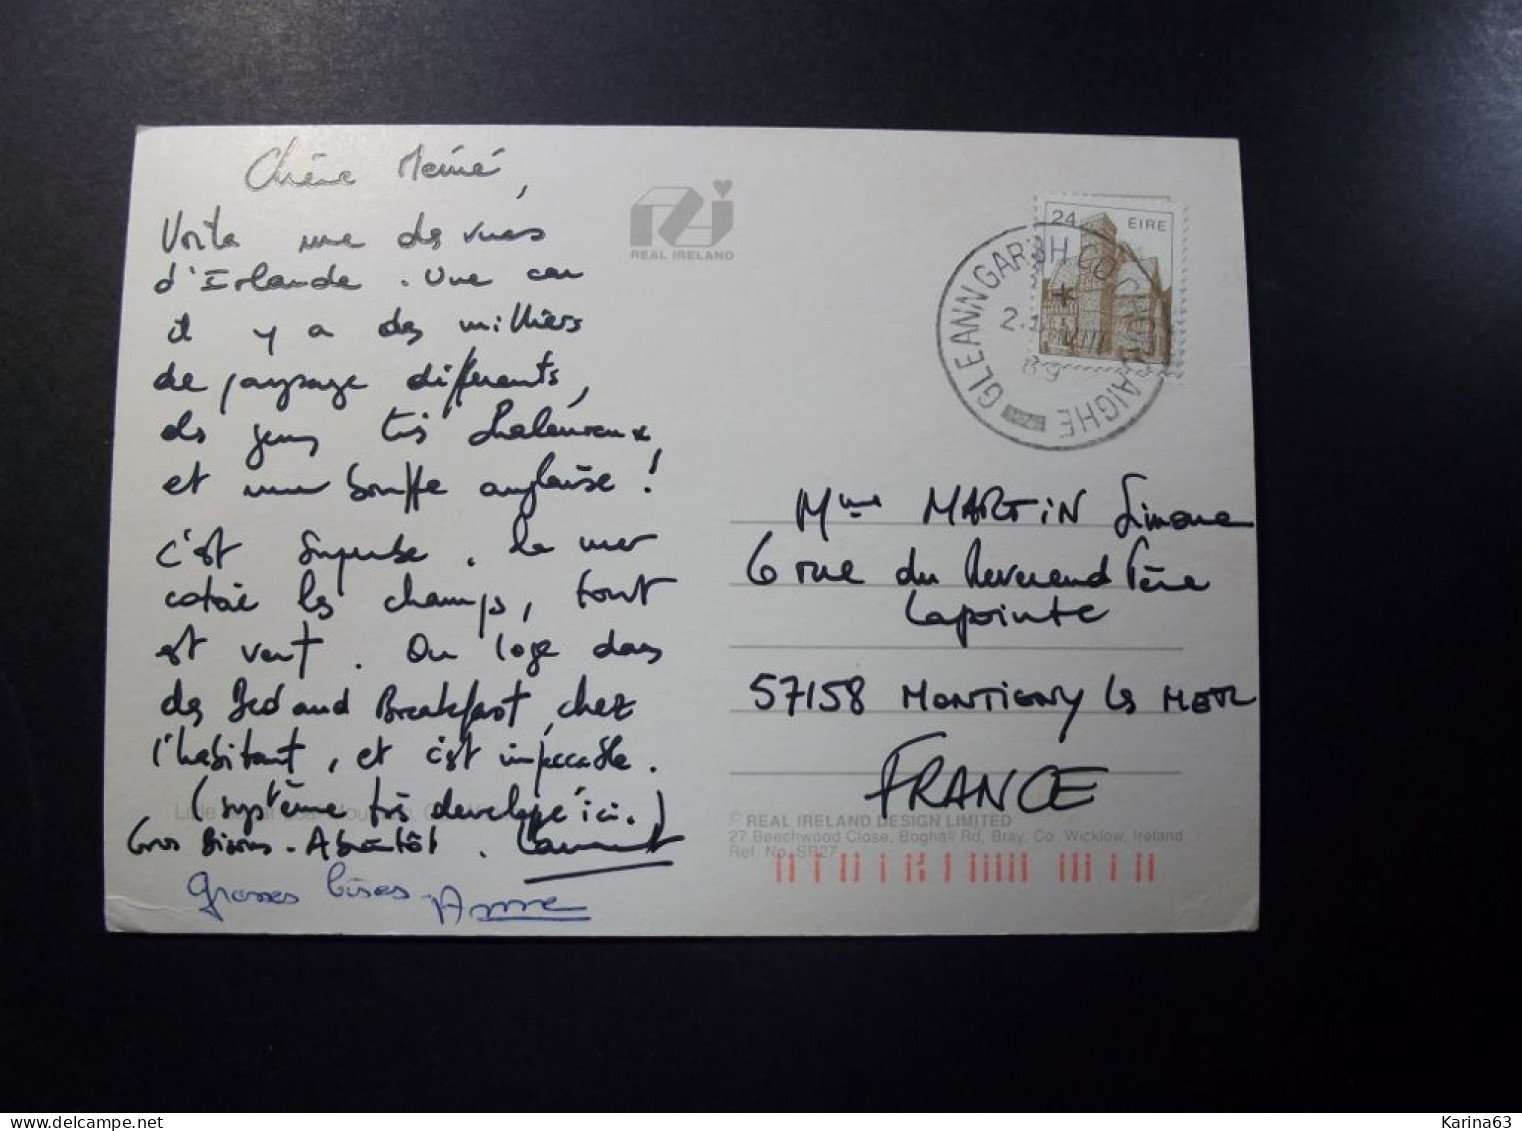 Chère Mémé,
Voilà une des vues
d'Irlande. Une car
il y a des milliers
de paysage différents,
des gens très chaleureux
et une bouffe anglaise !
c'est superbe. La mer
cotoie les champs, tout
est vert. On loge dans
des Bed and Breakfast, chez
l'habitant, et c'est impeccable.
(système très développé ici.)
Gros Bisous - A bientôt. Laurent
grosses bises. Anne
REAL IRELAND
24 EIRE
GLEANN GARBH CO CHORCAIGHE
VIII
89
Mme MARTIN Simone
6 rue du Reverend Père
Lapointe
57158 MONTIGNY les METZ
FRANCE
© REAL IRELAND DESIGN LIMITED
27 Beechwood Close, Boghall Rd, Bray, Co. Wicklow, Ireland
Ref. No. SR27
Karina63